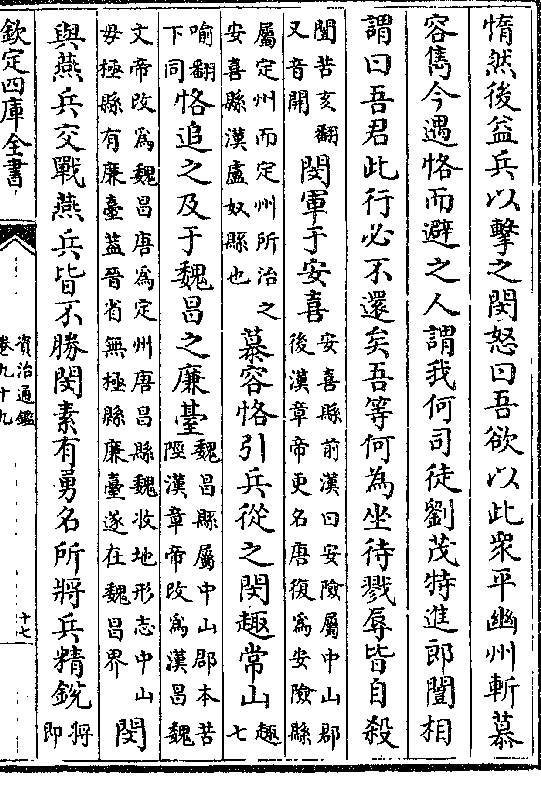 惰然後益兵以擊之閔怒曰吾欲以此衆平幽州斬慕
容儁今遇恪而避之人謂我何司徒劉茂特進郎闓相
謂曰吾君此行必不還矣吾等何為坐待戮辱皆自殺
闓苦亥翻又音開閔軍于安喜安喜縣前漢曰安險屬中山郡後漢章帝更名唐復為安險縣
屬定州而定州所治之安喜縣漢盧奴縣也慕容恪引兵從之閔趣常山趣七
喻翻下同恪追之及于魏昌之廉臺魏昌縣屬中山郡本苦陘漢章帝改爲漢昌魏
文帝改爲魏昌唐爲定州唐昌縣魏收地形志中山毋極縣有廉臺葢晉省無極縣廉臺遂在魏昌界閔
與燕兵交戰燕兵皆不勝閔素有勇名所將兵精銳將即
欽定四庫全書
資治通鑑
卷九十九
十七